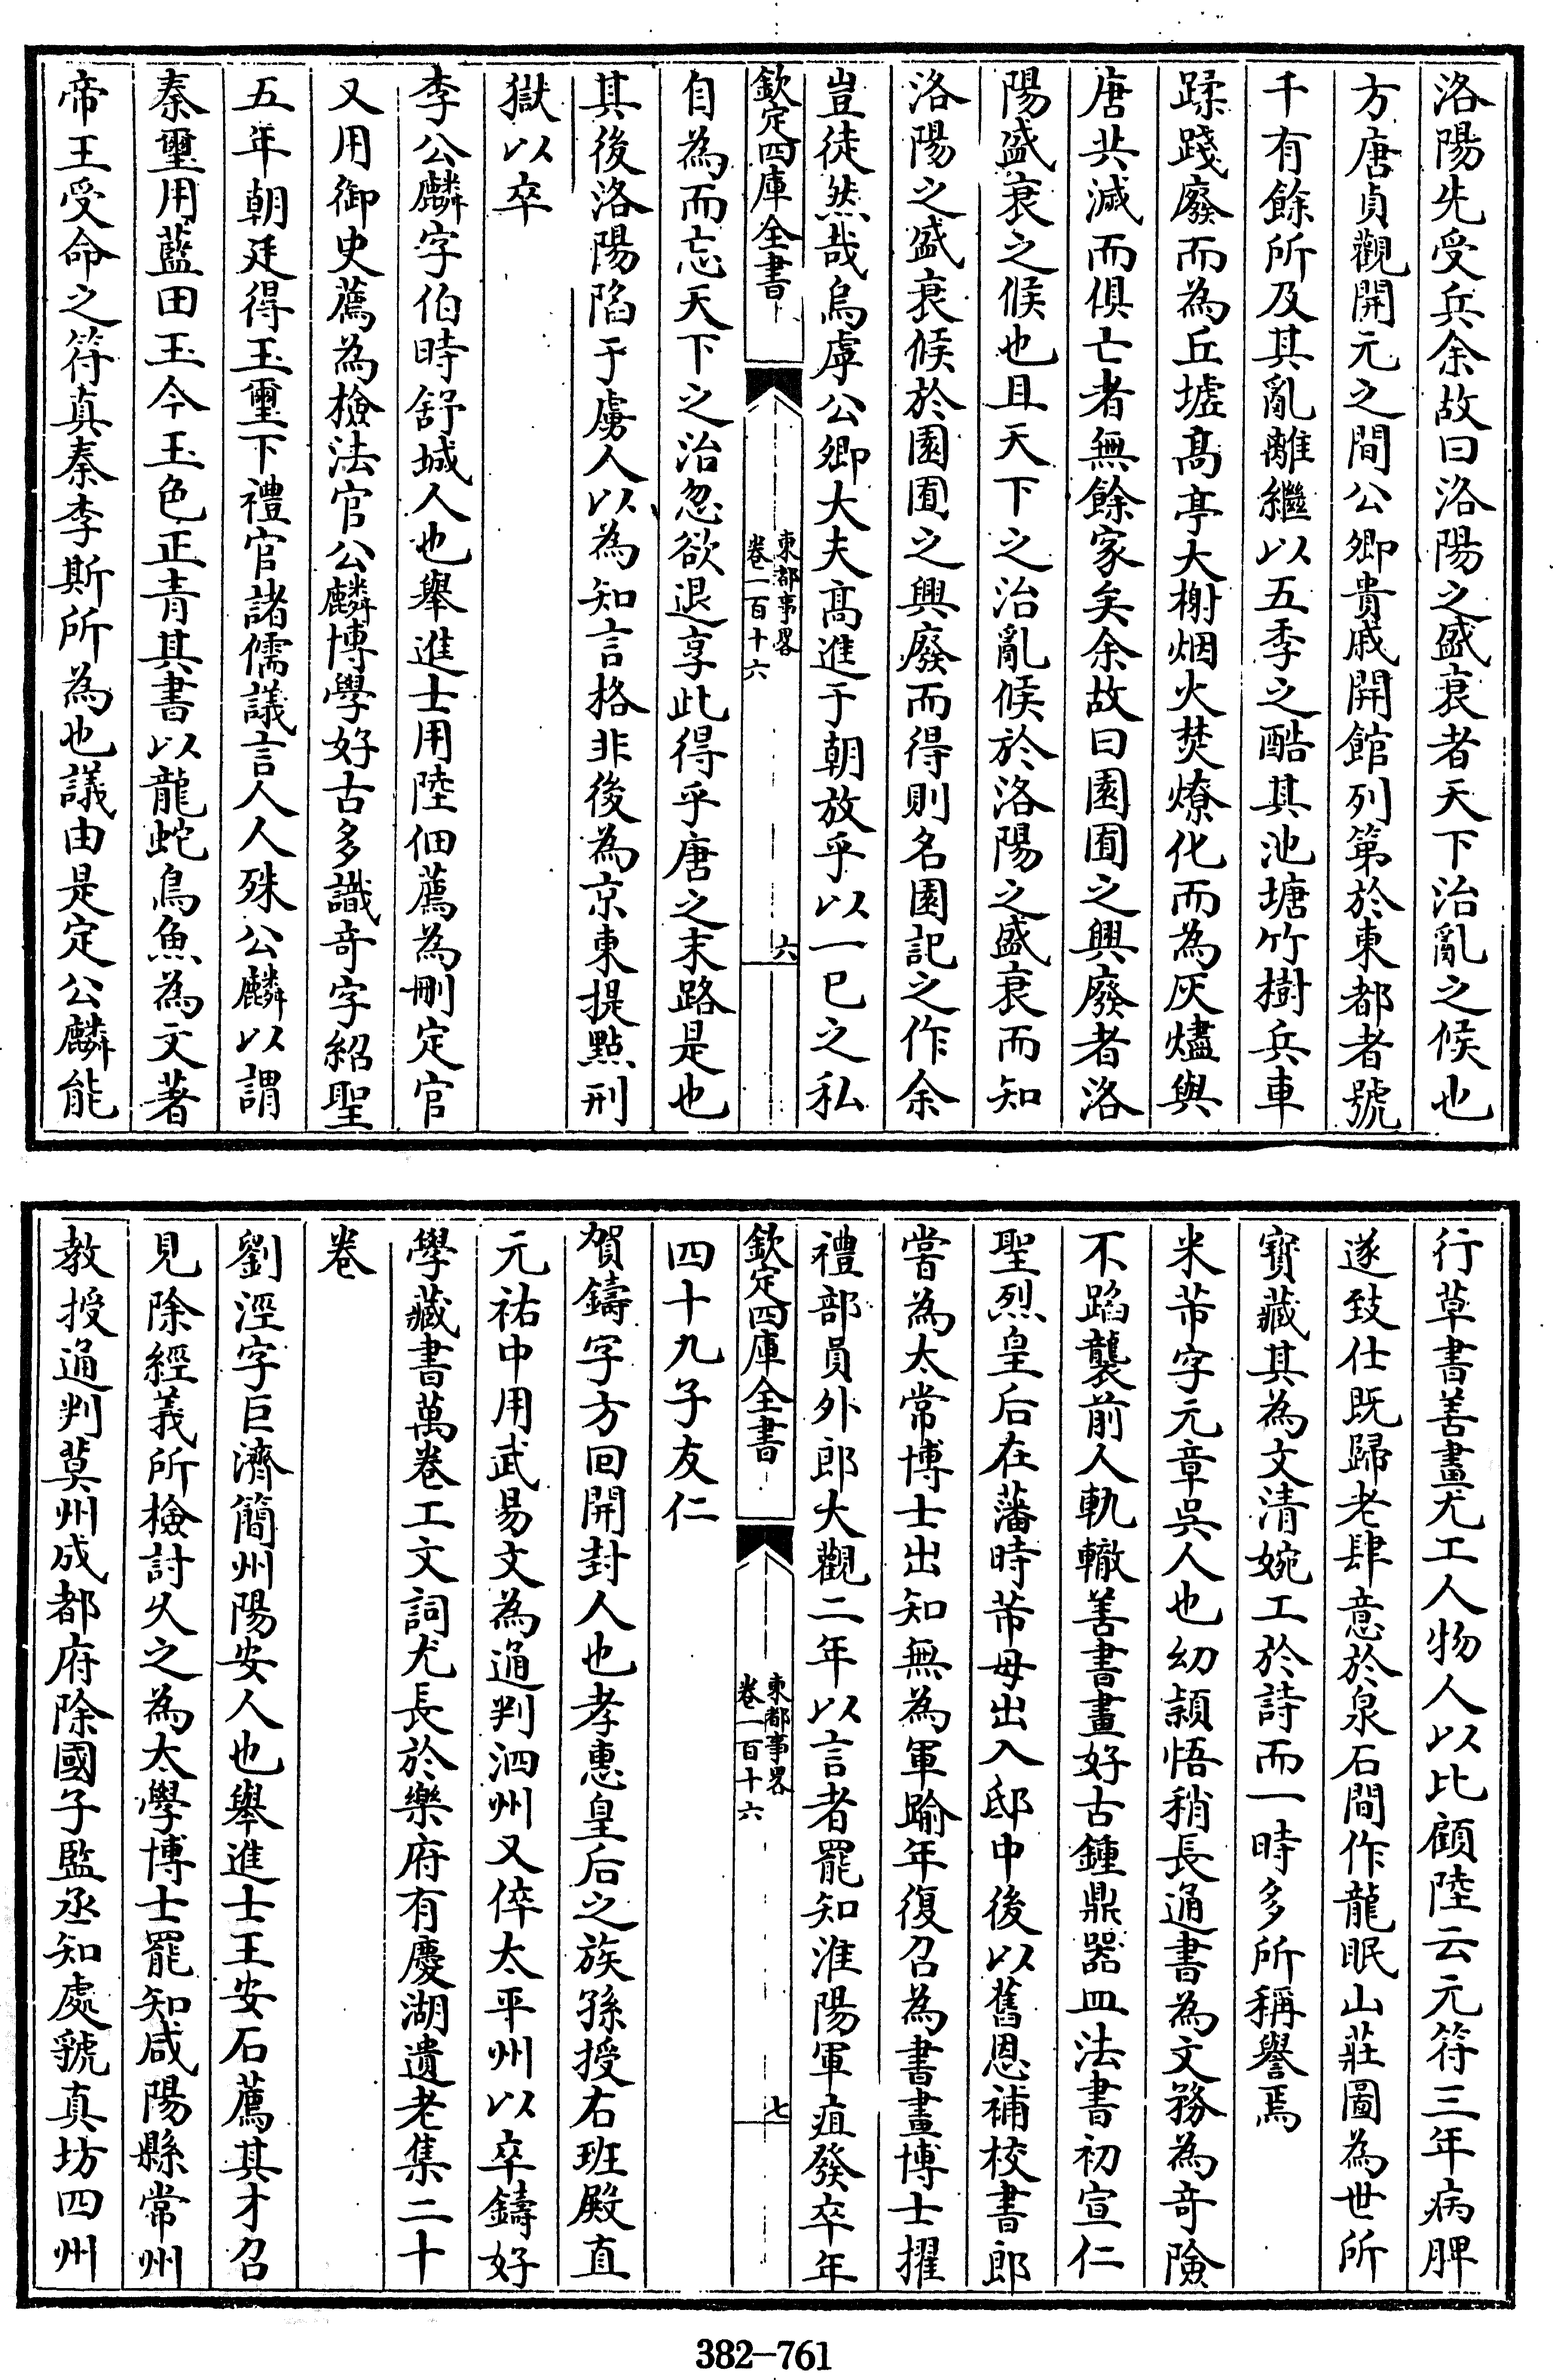 洛陽先受兵余故曰洛陽之盛衰者天下治亂之候也
方唐貞觀開元之間公卿貴戚開館列第於東都者號
千有餘所及其亂離繼以五季之酷其池塘竹樹兵車
蹂踐廢而為丘墟髙亭大榭烟火焚燎化而為灰燼與
唐共滅而俱亡者無餘家矣余故曰園囿之興廢者洛
陽盛衰之候也且天下之治亂候於洛陽之盛衰而知
洛陽之盛衰候於園囿之興廢而得則名園記之作余
豈徒然哉烏虖公卿大夫髙進于朝放乎以一已之私
欽定四庫全書
東都事畧
卷一百十六
六
自為而忘天下之治忽欲退享此得乎唐之末路是也
其後洛陽陷于虜人以為知言格非後為京東提點刑
獄以卒
李公麟字伯時舒城人也舉進士用陸佃薦為刪定官
又用御史薦為檢法官公麟博學好古多識奇字紹聖
五年朝廷得玉璽下禮官諸儒議言人人殊公麟以謂
秦璽用藍田玉今玉色正青其書以龍蛇鳥魚為文著
帝王受命之符真秦李斯所為也議由是定公麟能
行草書善畫尤工人物人以比顧陸云元符三年病脾
遂致仕既歸老肆意於泉石間作龍眠山莊圖為世所
寳藏其為文清婉工於詩而一時多所稱譽焉
米芾字元章吳人也幼穎悟稍長通書為文務為奇險
不蹈襲前人軌轍善書畫好古鍾鼎器皿法書初宣仁
聖烈皇后在藩時芾母出入邸中後以舊恩補校書郎
嘗為太常博士出知無為軍踰年復召為書畫博士擢
禮部員外郎大觀二年以言者罷知淮陽軍疽發卒年
欽定四庫全書
東都事畧
卷一百十六
七
四十九子友仁
賀鑄字方回開封人也孝惠皇后之族孫授右班殿直
元祐中用武易文為通判泗州又倅太平州以卒鑄好
學藏書萬卷工文詞尤長於樂府有慶湖遺老集二十
卷
劉涇字巨濟簡州陽安人也舉進士王安石薦其才召
見除經義所檢討乆之為太學博士罷知咸陽縣常州
教授通判莫州成都府除國子監丞知處虢真坊四州
382-761